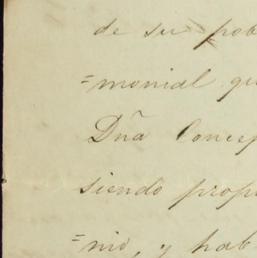 de su pob
=monial qu
Dña Concep
siendo prop
=nio, y hab